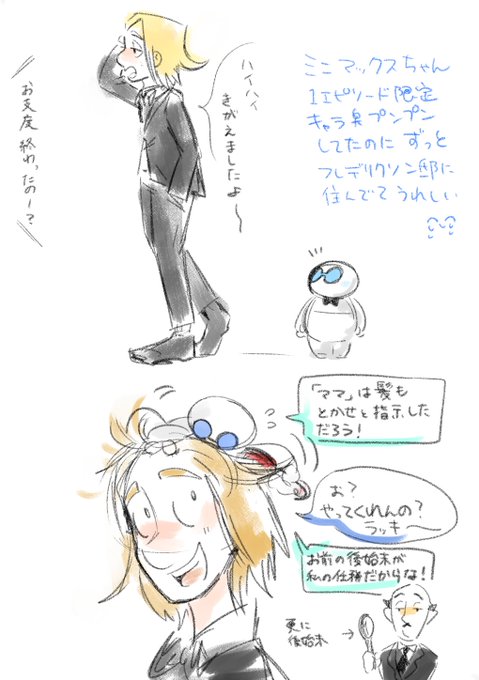 ミニマックスちゃん
1エピソード限定
キャラ臭プンプン
してたのに ずっと
フレデリクソン邸に
住んでて うれしい
ハイハイ
きがえましたよ〜
お支度 終わったのー?
「ママ」は髪も
とかせと指示した
だろう!
お?
やってくれんの?
ラッキ〜
お前の後始末が
私の任務だからな!
更に
後始末